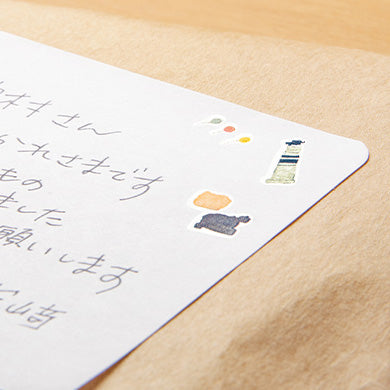 さん
かれさまです
もの
ました
願いします
崎